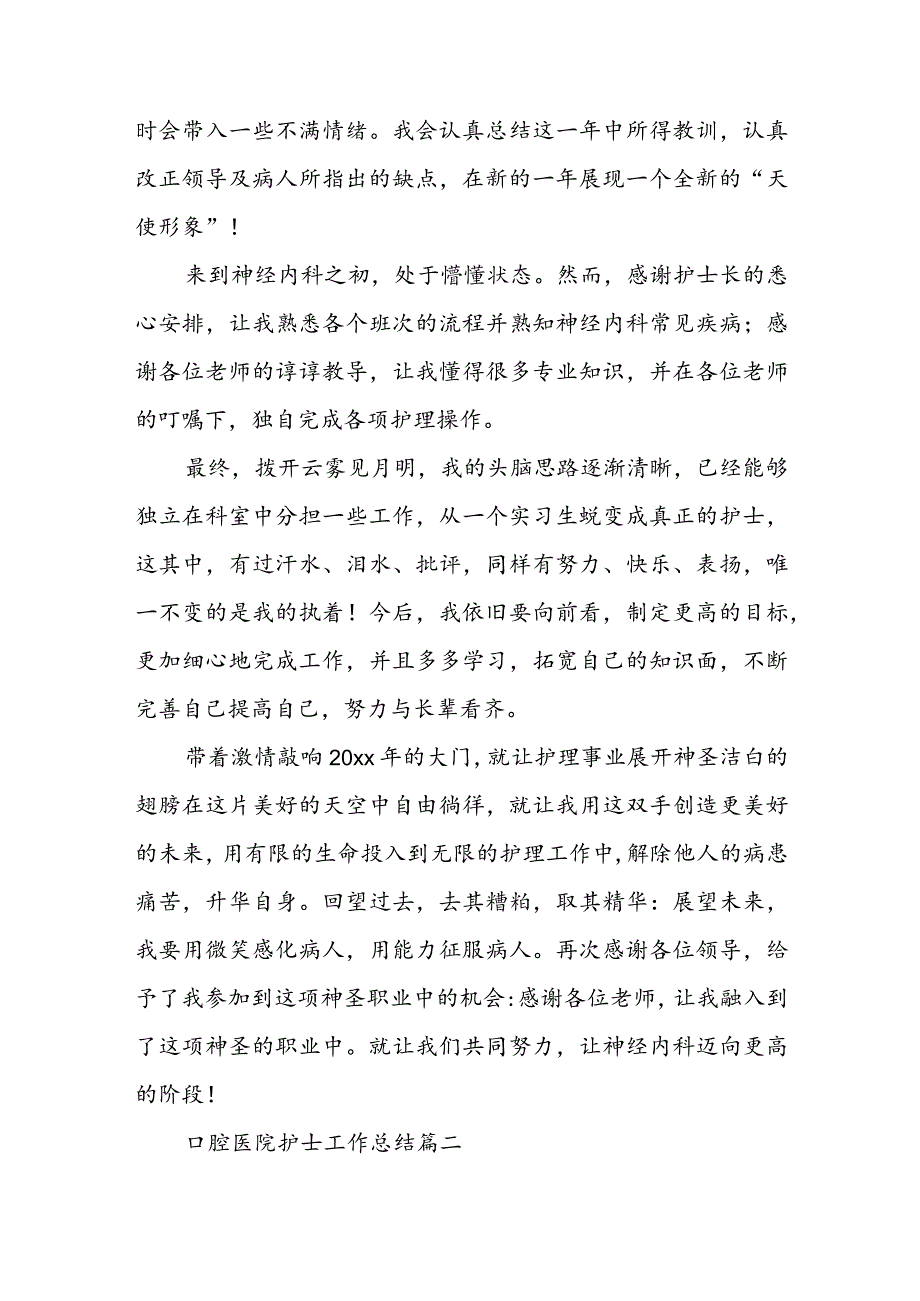 时会带入一些不满情绪。我会认真总结这一年中所得教训，认真
改正领导及病人所指出的缺点，在新的一年展现一个全新的“天
使形象”！
来到神经内科之初，处于懵懂状态。然而，感谢护士长的悉
心安排，让我熟悉各个班次的流程并熟知神经内科常见疾病；感
谢各位老师的谆谆教导，让我懂得很多专业知识，并在各位老师
的叮嘱下，独自完成各项护理操作。
最终，拨开云雾见月明，我的头脑思路逐渐清晰，已经能够
独立在科室中分担一些工作，从一个实习生蜕变成真正的护士，
这其中，有过汗水、泪水、批评，同样有努力、快乐、表扬，唯
一不变的是我的执着！今后，我依旧要向前看，制定更高的目标，
更加细心地完成工作，并且多多学习，拓宽自己的知识面，不断
完善自己提高自己，努力与长辈看齐。
带着激情敲响20xx年的大门，就让护理事业展开神圣洁白的
翅膀在这片美好的天空中自由徜徉，就让我用这双手创造更美好
的未来，用有限的生命投入到无限的护理工作中，解除他人的病患
痛苦，升华自身。回望过去，去其糟粕，取其精华：展望未来，
我要用微笑感化病人，用能力征服病人。再次感谢各位领导，给
予了我参加到这项神圣职业中的机会:感谢各位老师，让我融入到
了这项神圣的职业中。就让我们共同努力，让神经内科迈向更高
的阶段！
口腔医院护士工作总结篇二